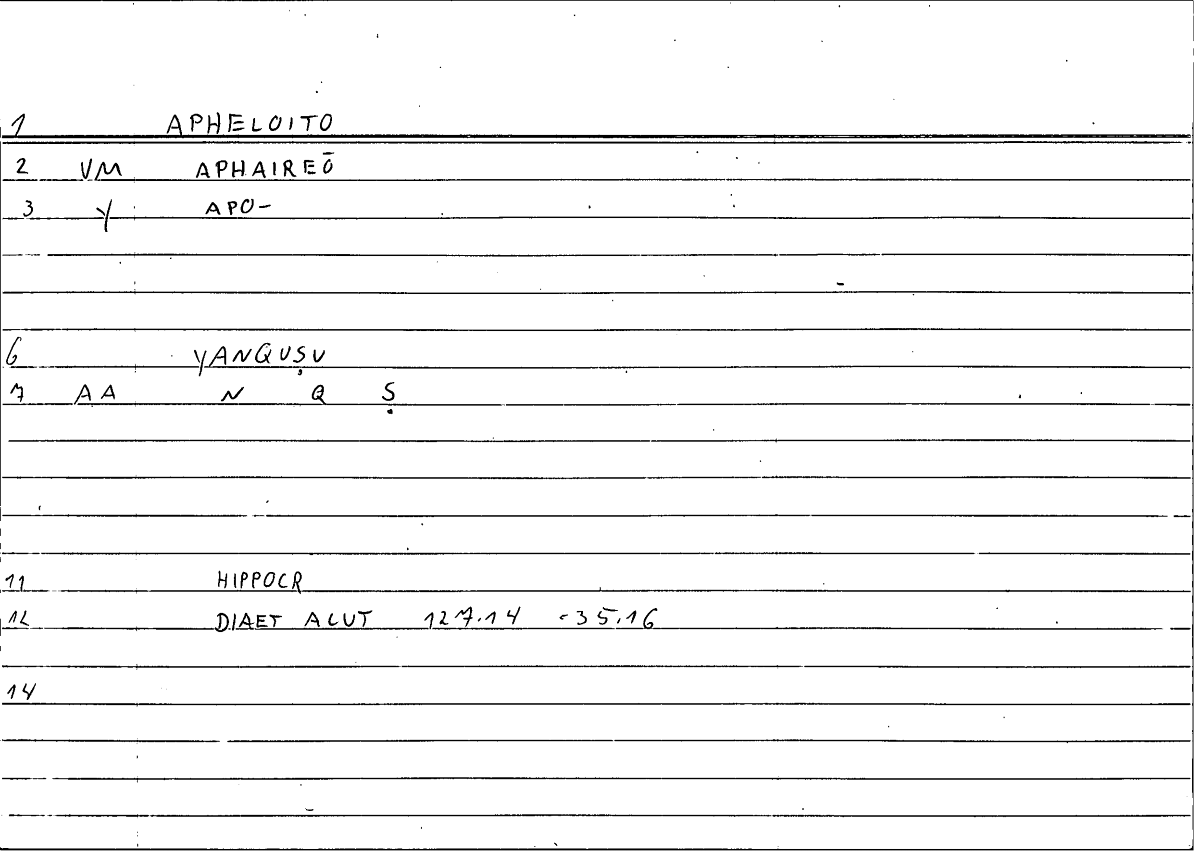 1 APHELOITO
2 VM APHAIREŌ
3 Y APO-
6 YANQUṢU
7 AA N Q Ṣ
11 HIPPOCR
12 DIAET ACUT 127.14 -35.16
14